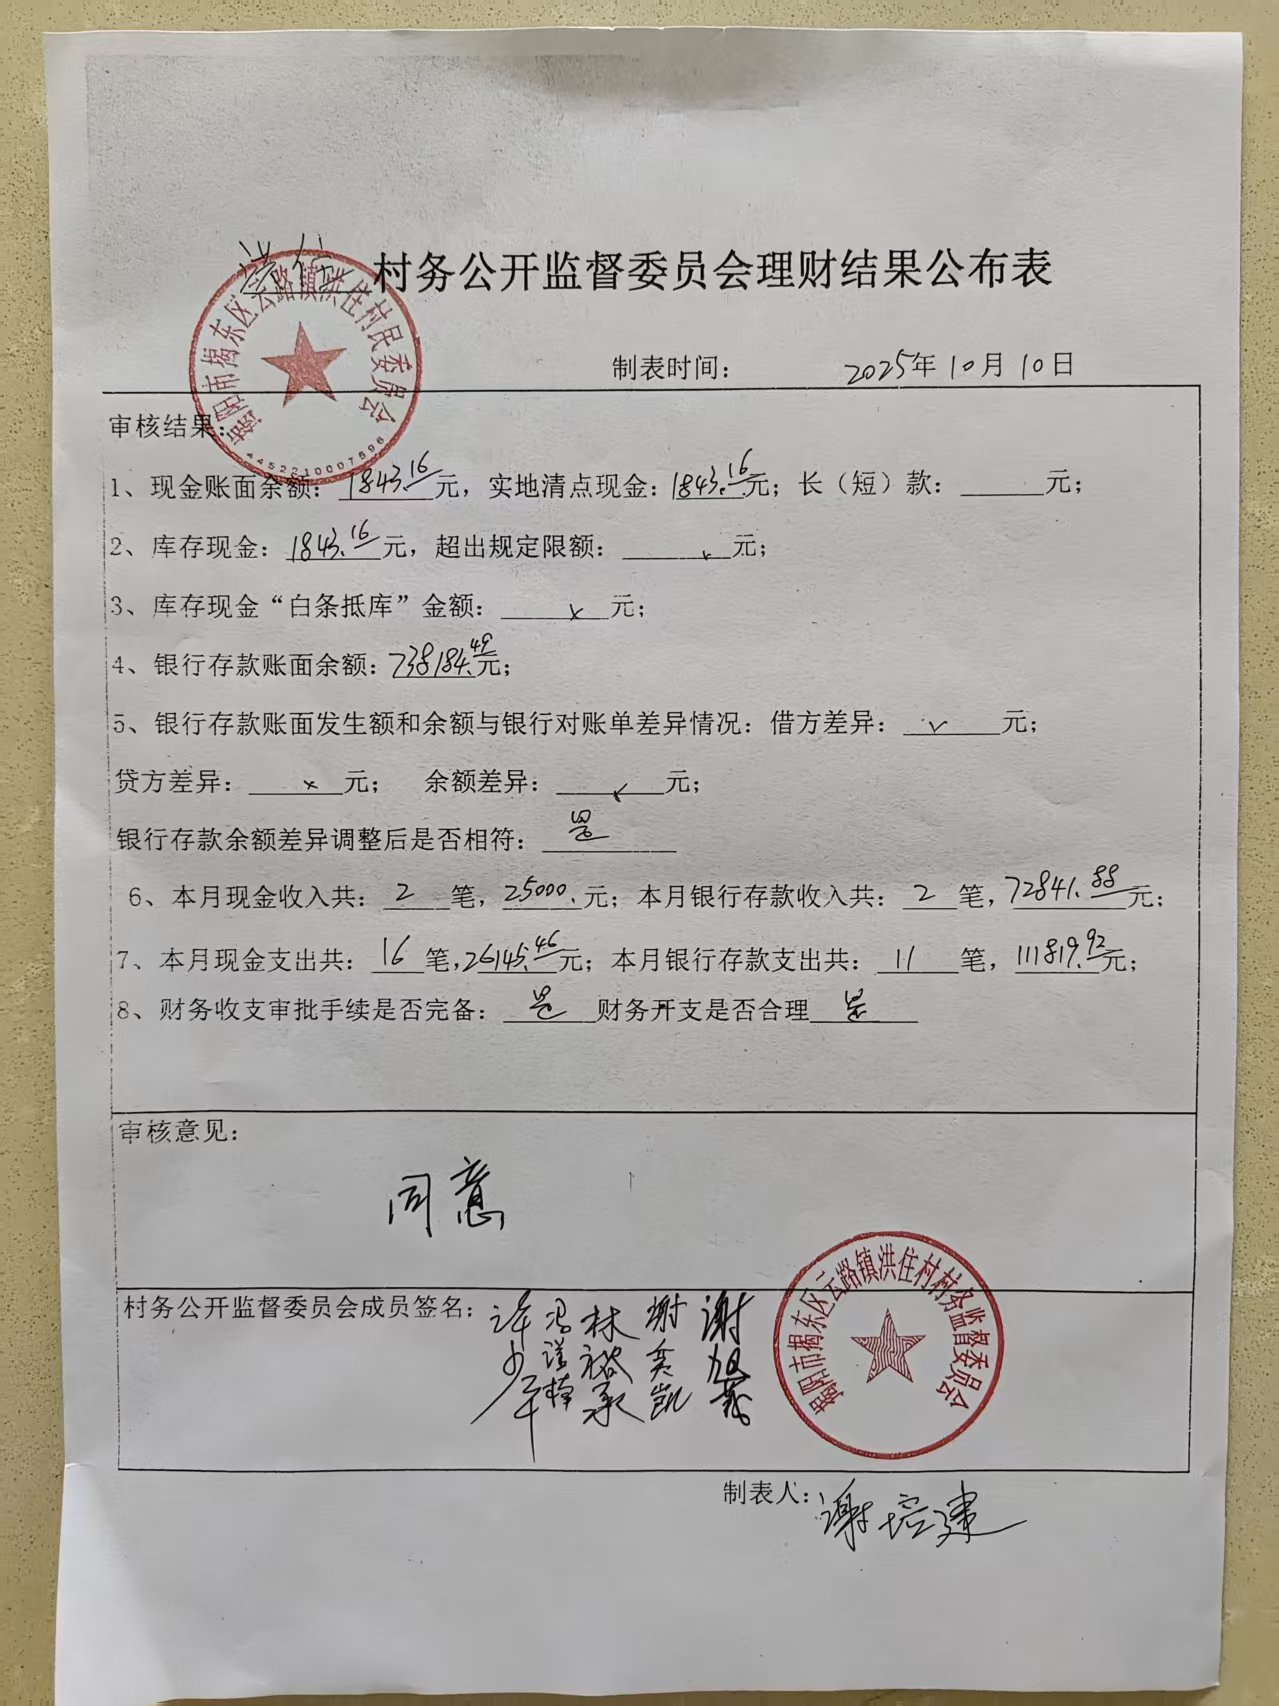 洪住村务公开监督委员会理财结果公布表
揭阳市揭东区云路镇洪住村民委员会
4452210007596
制表时间： 2025年10月10日
审核结果：
1、现金账面余额：1843.16元，实地清点现金：1843.16元；长（短）款：______元；
2、库存现金：1843.16元，超出规定限额：______元；
3、库存现金“白条抵库”金额：___×___元；
4、银行存款账面余额：738184.49元；
5、银行存款账面发生额和余额与银行对账单差异情况：借方差异：______元；
贷方差异：___×___元； 余额差异：______元；
银行存款余额差异调整后是否相符：是
6、本月现金收入共：2笔，25000.元；本月银行存款收入共：2笔，72841.88元；
7、本月现金支出共：16笔，26145.46元；本月银行存款支出共：11笔，111819.92元；
8、财务收支审批手续是否完备：是 财务开支是否合理 是
审核意见：
同意
村务公开监督委员会成员签名：许少平 冯谨楠 林裕承 谢奕凯 谢
揭阳市揭东区云路镇洪住村村务监督委员会
制表人：谢培建